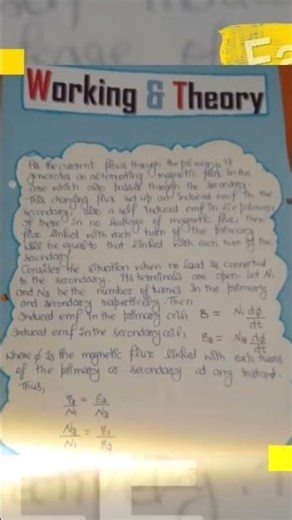 Working & Theory
As the current flows through the primary, it
generates an alternating magnetic flux in the
core which also passes through the secondary.
This changing flux set up an induced emf in the
secondary, also a self induced emf in the primary
If there is no leakage of magnetic flux, then
flux linked with each turn of the primary
will be equal to that linked with each turn of the
secondary.
Consider the situation when no load is connected
to the secondary. Its terminals are open. Let N₁
and N₂ be the number of turns in the primary
and secondary respectively. Then
Induced emf in the primary coil, = N₁ dϕ/dt
Induced emf in the secondary coil, E₂ = N₂ dϕ/dt
Where ϕ is the magnetic flux linked with each turn
of the primary or secondary at any instant.
Thus,
= E₂/N₂
N₂/N₁ =